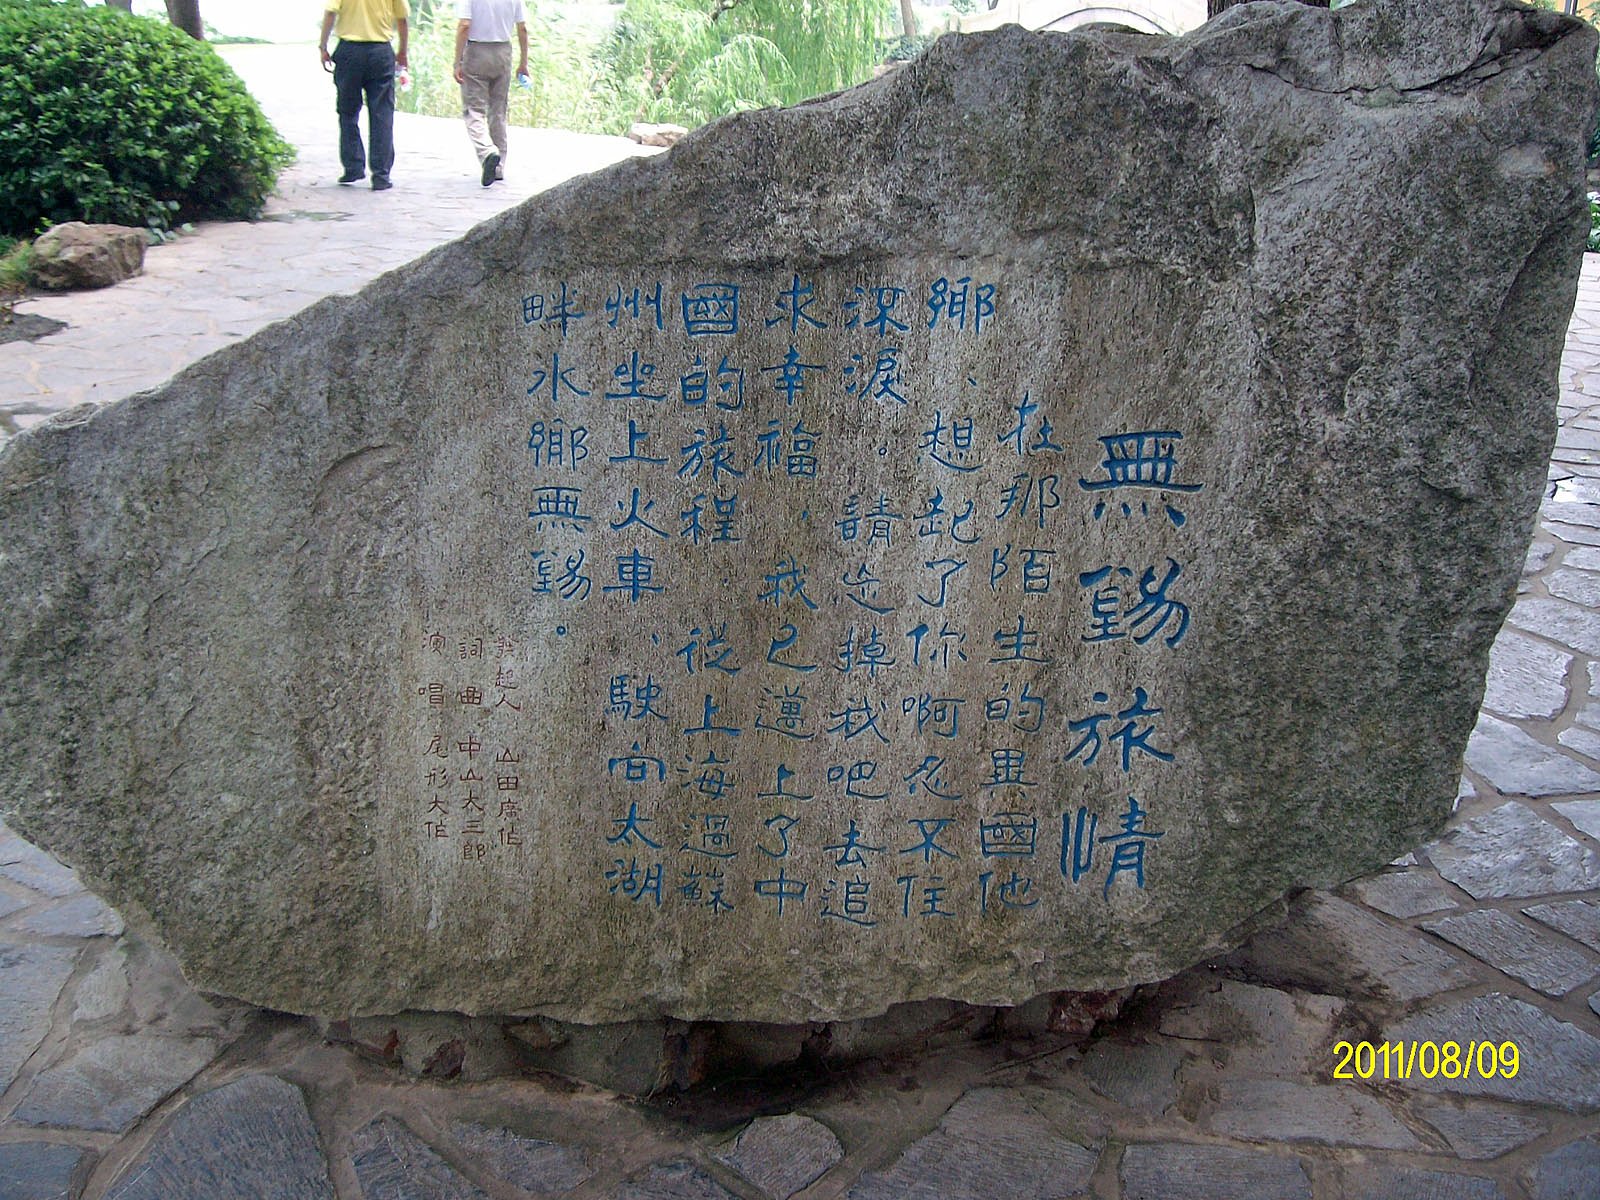 無錫旅情
在那陌生的異國他
鄉、想起了你啊忍不住
深淚。請忘掉我吧去追
求幸福，我已邁上了中
國的旅程.從上海過蘇
州坐上火車、駛向太湖
畔水鄉無錫。
發起人 山田廣作
詞曲 中山大三郎
演唱 尾形大作
2011/08/09